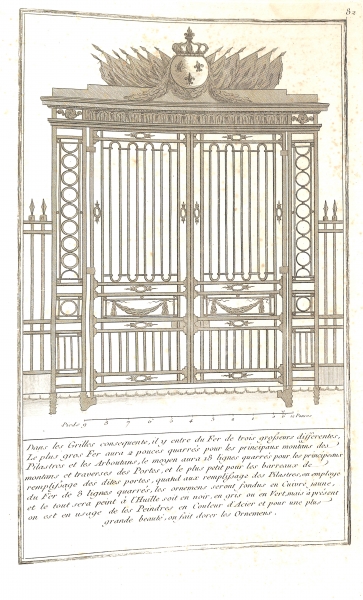 82
Pieds 9 8 7 6 5 4 3 2 1 0 12 Pouces
Dans les Grilles consequente, il y entre du Fer de trois grosseurs differentes,
Le plus gros Fer aura 2 pouces quarrés pour les principaux montans des
Pilastres et les Arboutans, le moyen aura 18 lignes quarrés pour les principaux
montans et traverses des Portes, et le plus petit pour les barreaux de
remplissage des dites portes, quand aux remplissage des Pilastres, on employe
du Fer de 8 lignes quarrés, les ornemens seront fondus en Cuivre jaune,
et le tout sera peint à l'Huille soit en noir, en gris ou en Vert, mais à présent
on est en usage de les Peindres en Couleur d'Acier et pour une plus
grande beauté, on fait dorer les Ornemens.